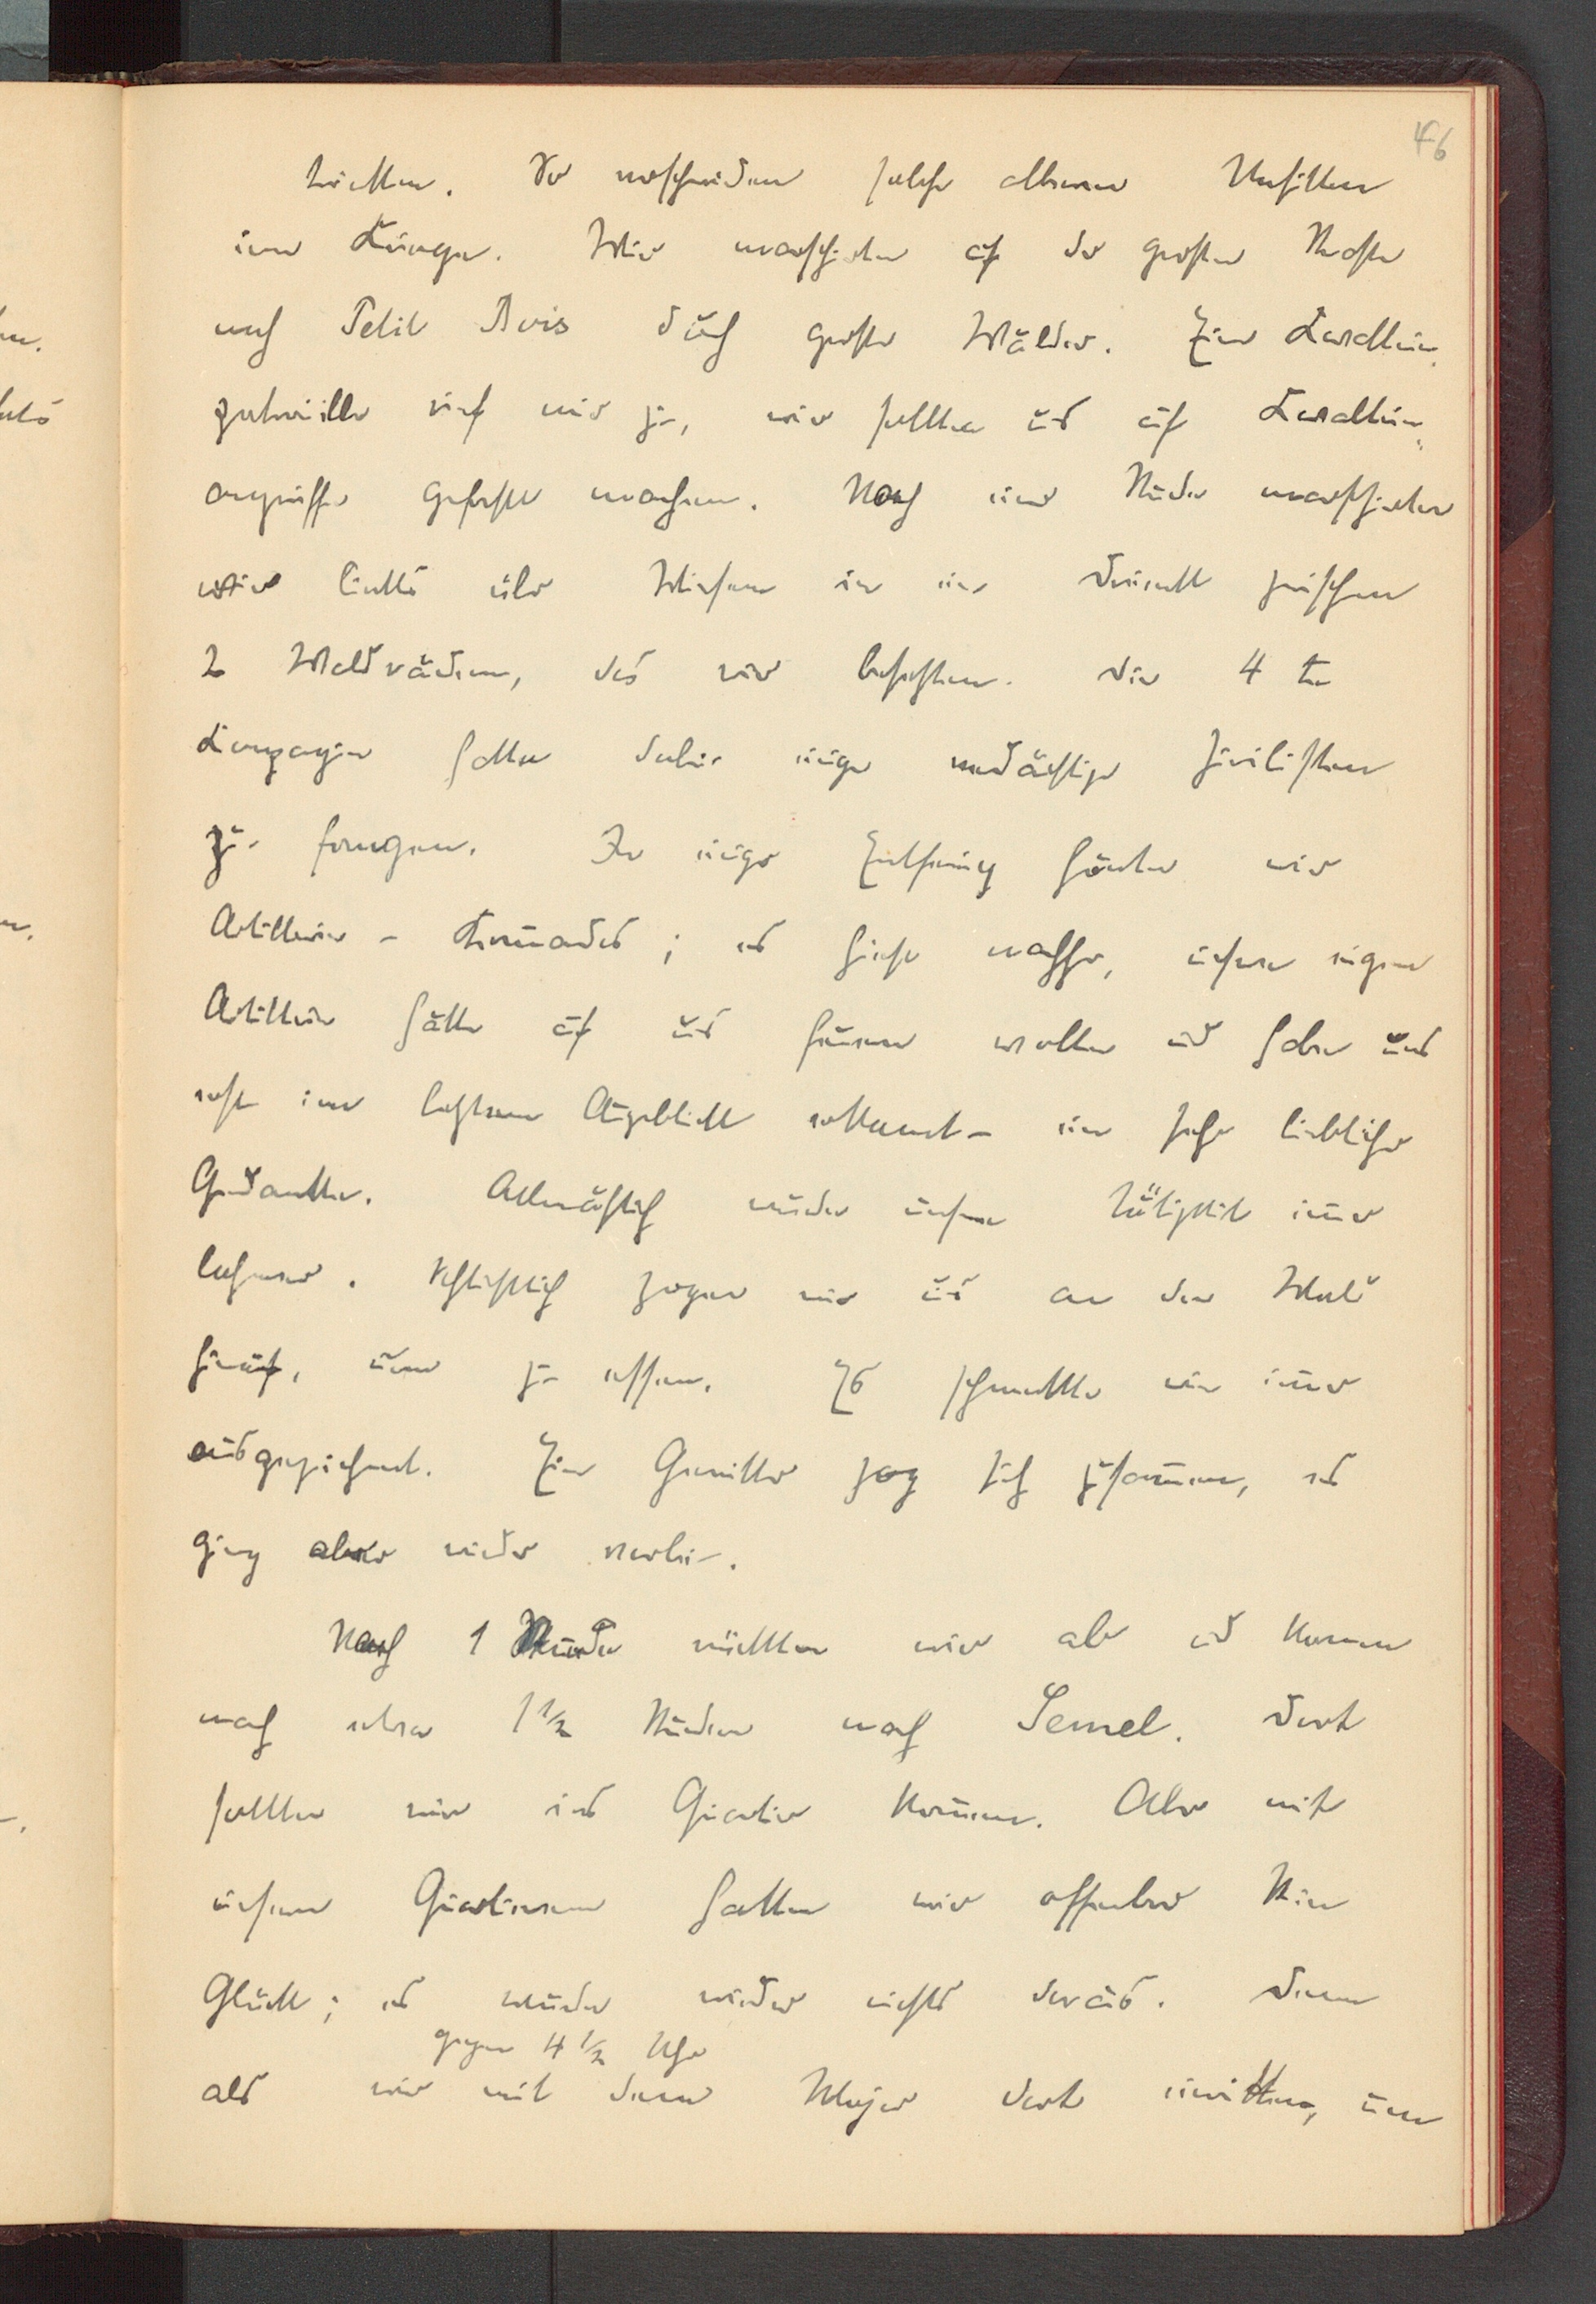 46
hätten. So verschwinden solche albernen Unsitten
im Kriege. Wir marschierten auf der großen Straße
nach Petit Bois durch große Wälder. Eine Kavallerie-
patrouille rief mir zu, wir sollten uns auf Kavallerie-
angriffe gefaßt machen. Nach einer Stunde marschierten
wir links über Wiesen in ein Dreieck zwischen
2 Waldrändern, das wir besetzten. Die 4 te
Kompagnie hatte dabei einige verdächtige Zivilisten
gefangen. In einiger Entfernung hörten wir
Artillerie - Kanonade; es hieß nachher, unsere eigene
Artillerie hätte auf uns feuern wollen und habe uns
erst im letzten Augenblick erkannt - ein sehr lieblicher
Gedanke. Allmählich wurde unsere Tätigkeit immer
. Schließlich zogen wir uns an den Wald
hinauf, um zu essen. Es schmeckte wie immer
ausgezeichnet. Ein Gewitter zog sich zusammen, es
ging aber wieder vorbei.
Nach 1 Stunde rückten wir ab und kamen
nach etwa 1 1/2 Stunden nach Semel. Dort
sollten wir ins Quartier kommen. Aber mit
unseren Quartieren hatten wir offenbar kein
Glück; es wurde wieder nichts daraus. Denn
gegen 4 1/2 Uhr
als wir mit dem Major dort einritten, um